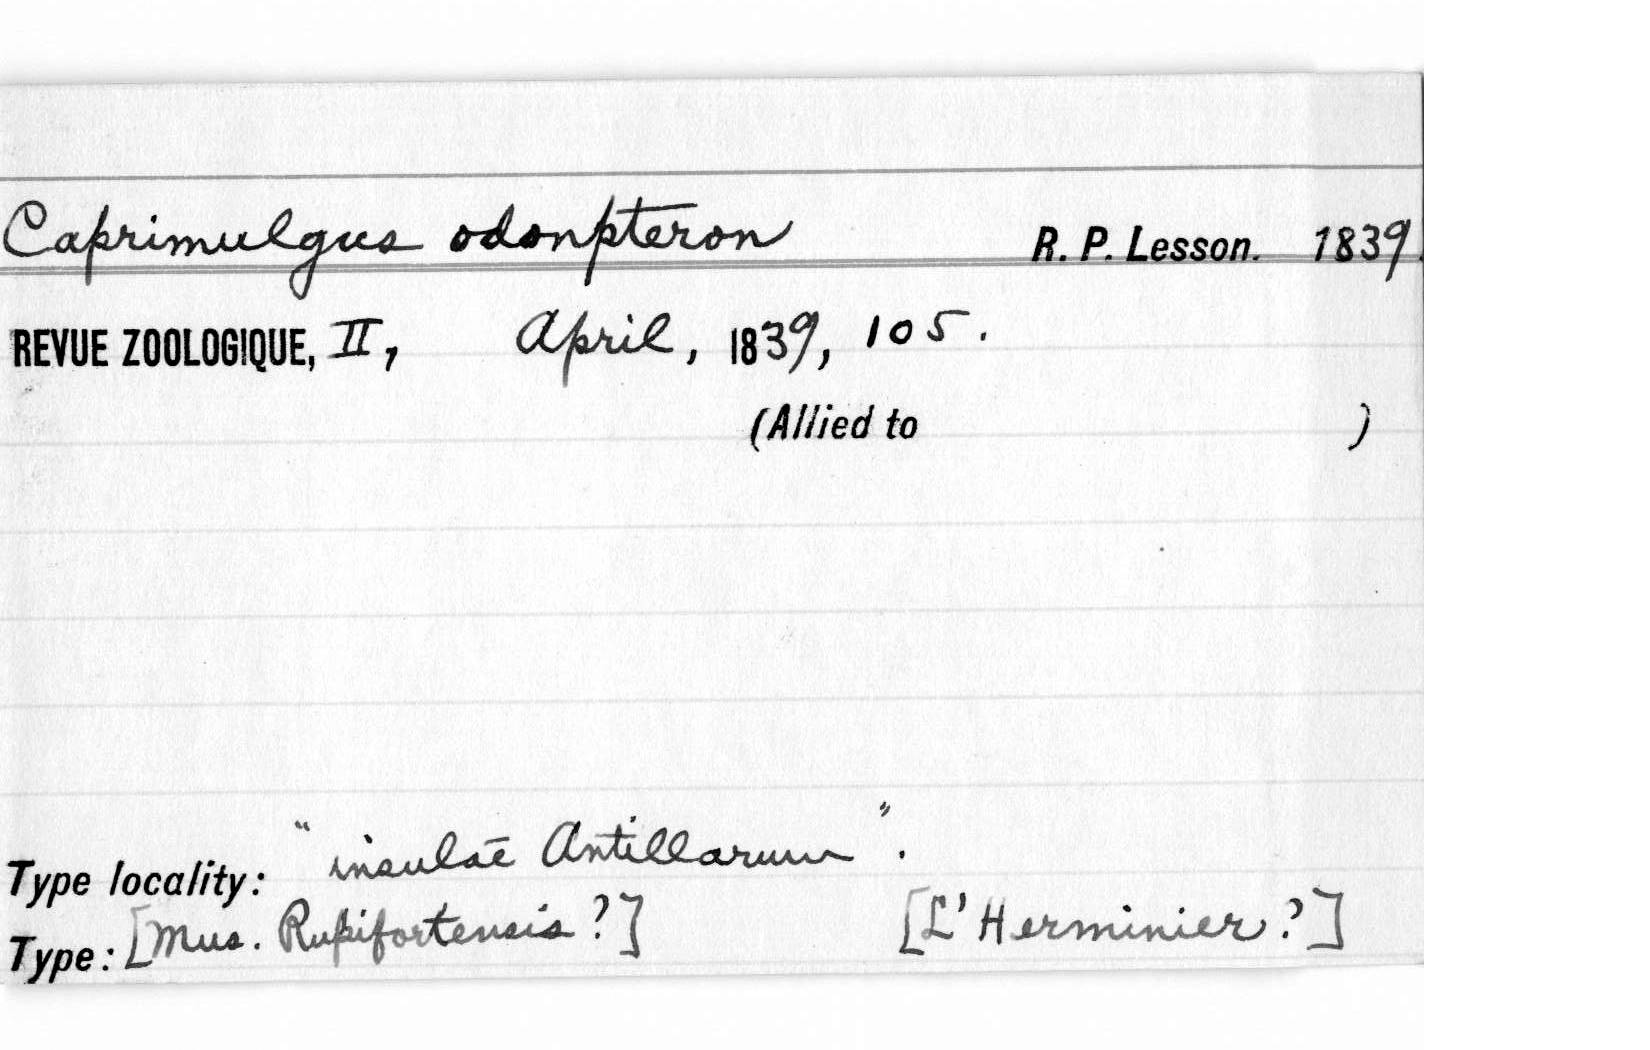 Caprimulgus odonpteron R. P. Lesson. 1839.
REVUE ZOOLOGIQUE, II, April, 1839, 105.
(Allied to )
Type locality: "insulae Antillarum".
Type: [Mus. Rupifortensis?] [L'Herminier?]